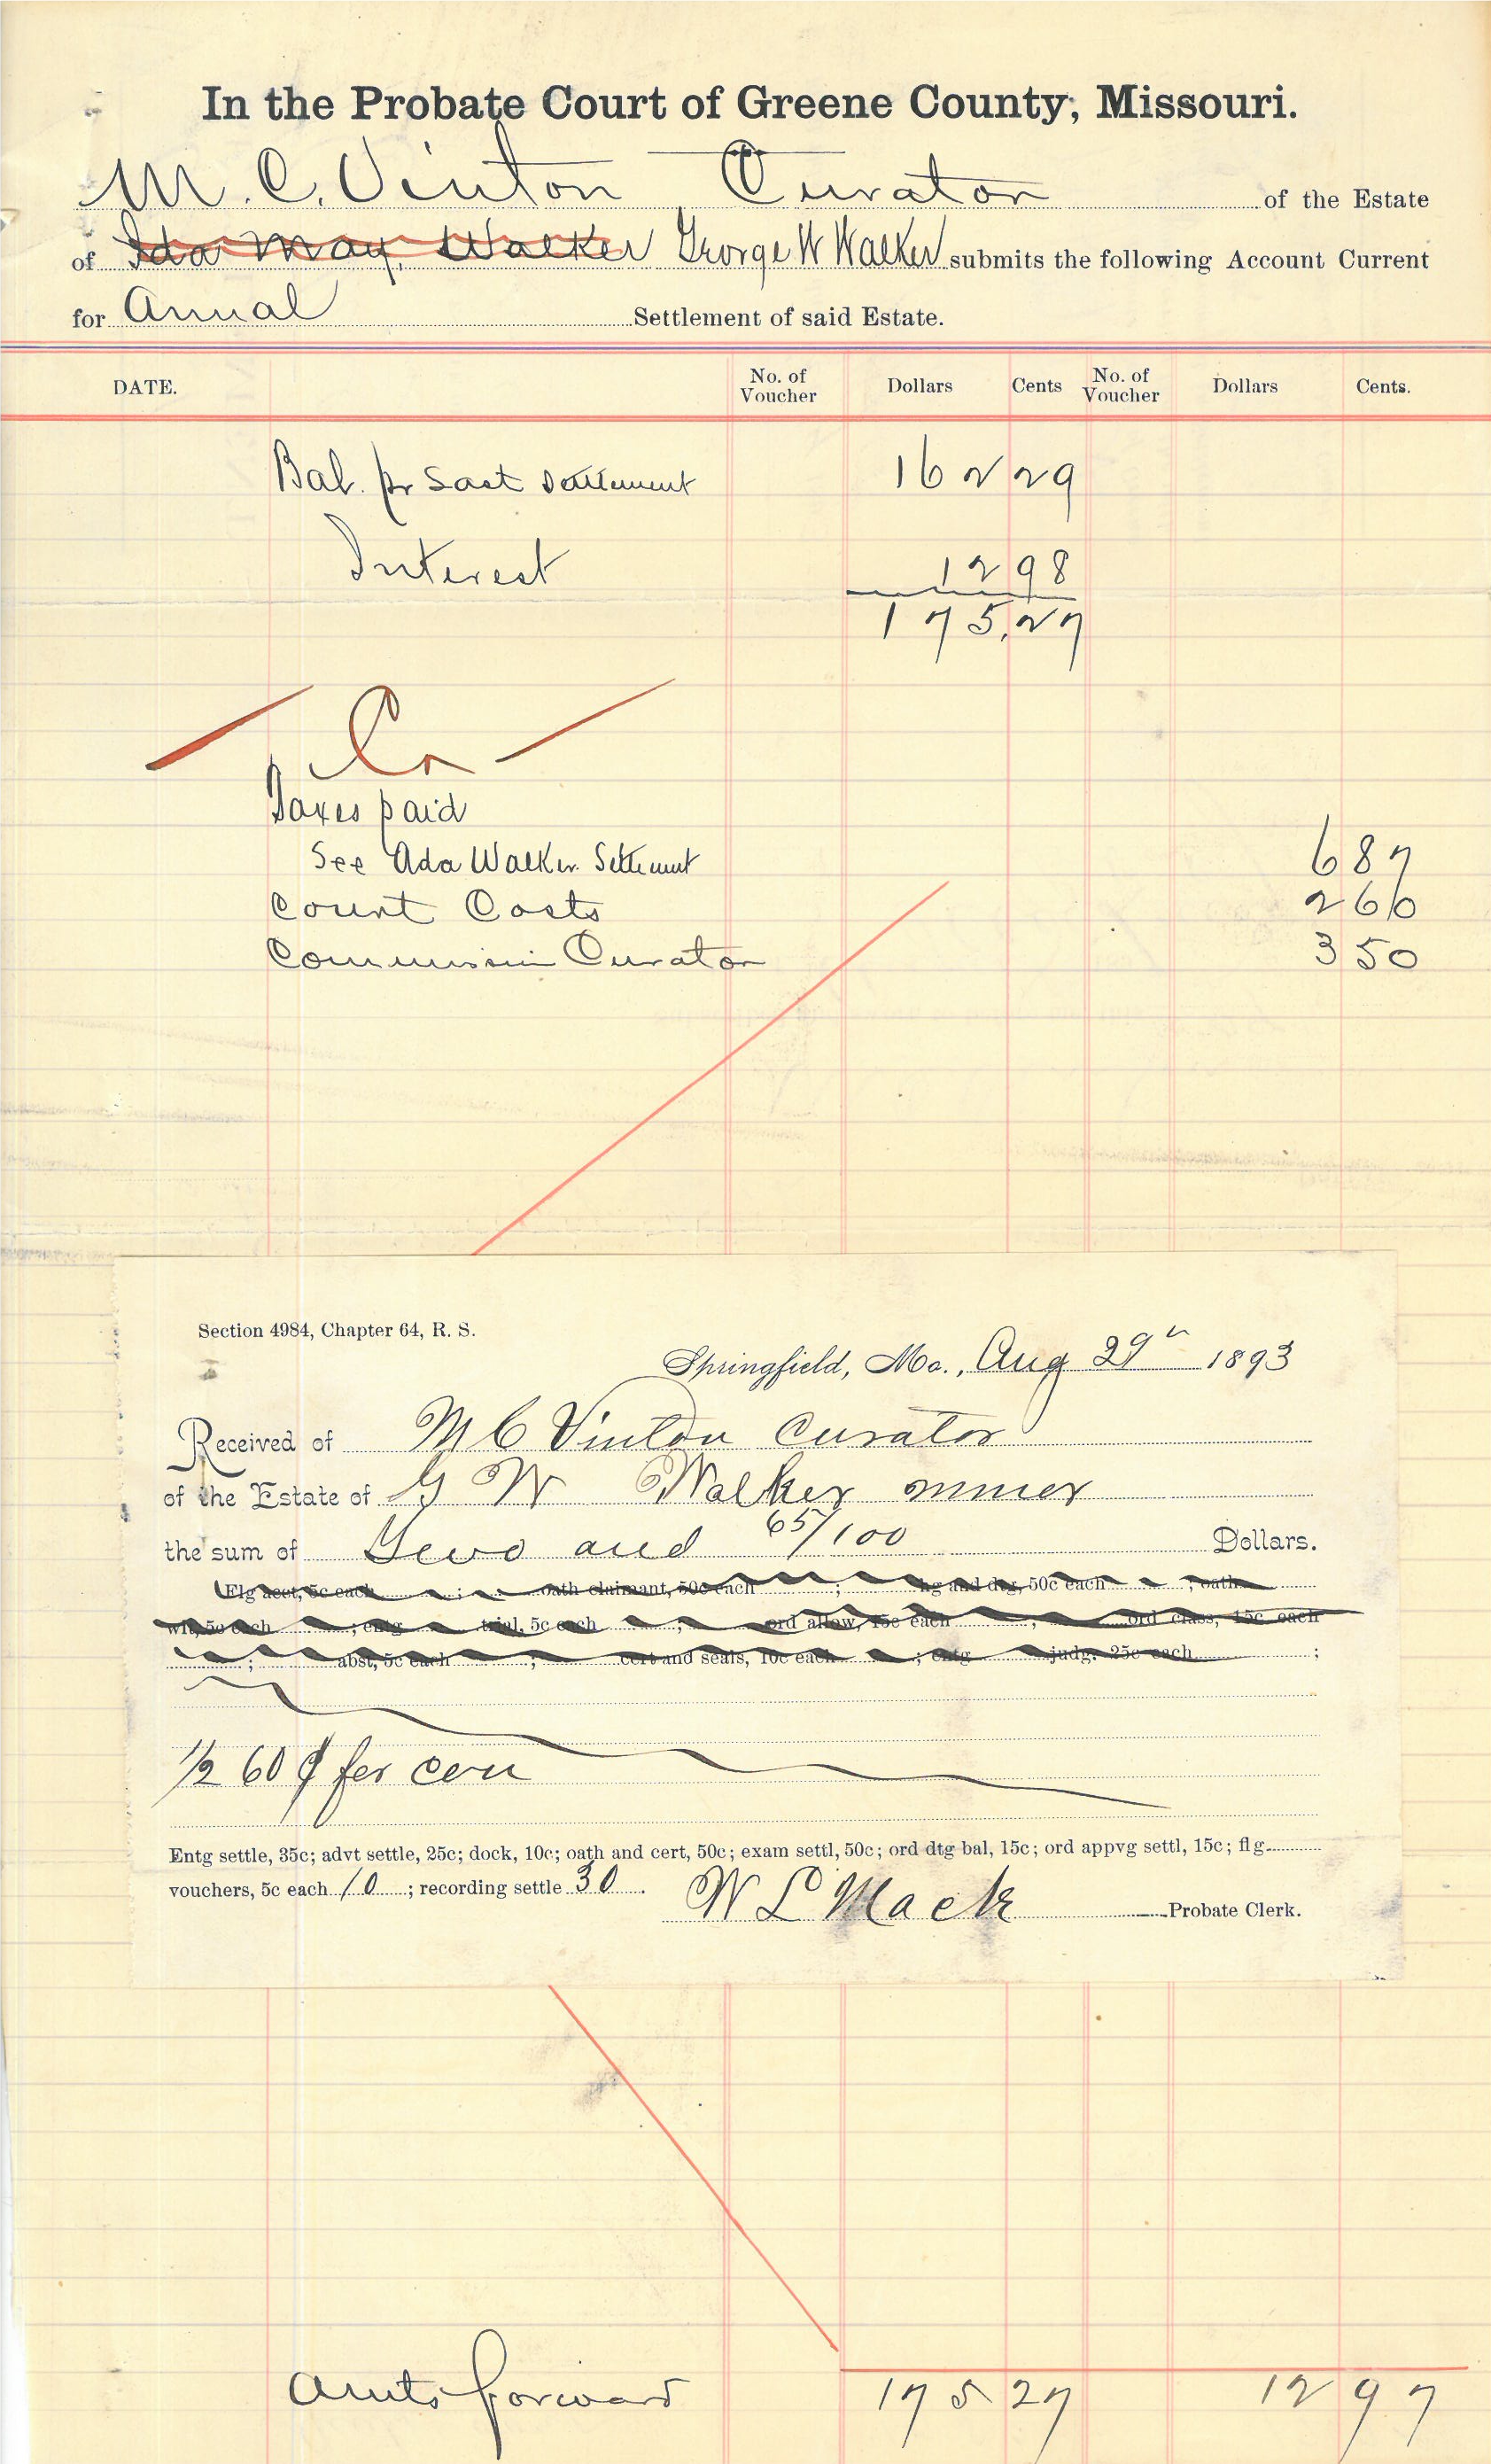 In the Probate Court of Greene County, Missouri.
M. C. Vinton Curator of the Estate
of Ida May Walker George W Walker submits the following Account Current
for Annual Settlement of said Estate.
DATE. No. of Voucher Dollars Cents No. of Voucher Dollars Cents.
Bal. pr Last Settlement 162 29
Interest 12 98
175,27
Cr
Taxes paid
See Ada Walker Settlement 6 87
Court Costs 2 60
Commission Curator 3 50
Section 4984, Chapter 64, R. S.
Springfield, Mo., Aug 29th 1893
Received of M C Vinton Curator
of the Estate of G W Walker minor
the sum of Two and 65/100 Dollars.
Flg acct, 5c each ; oath claimant, 50c each ; hg and dtg, 50c each ; oath
wit, 5c each ; entg trial, 5c each ; ord allow, 15c each ; ord class, 15c each
; abst, 5c each ; cert and seals, 10c each ; entg judg. 25c each ;
1/2 60 ¢ for con
Entg settle, 35c; advt settle, 25c; dock, 10c; oath and cert, 50c; exam settl, 50c; ord dtg bal, 15c; ord appvg settl, 15c; flg
vouchers, 5c each 10 ; recording settle 30. W L Mack Probate Clerk.
Amts forward 175 27 12 97